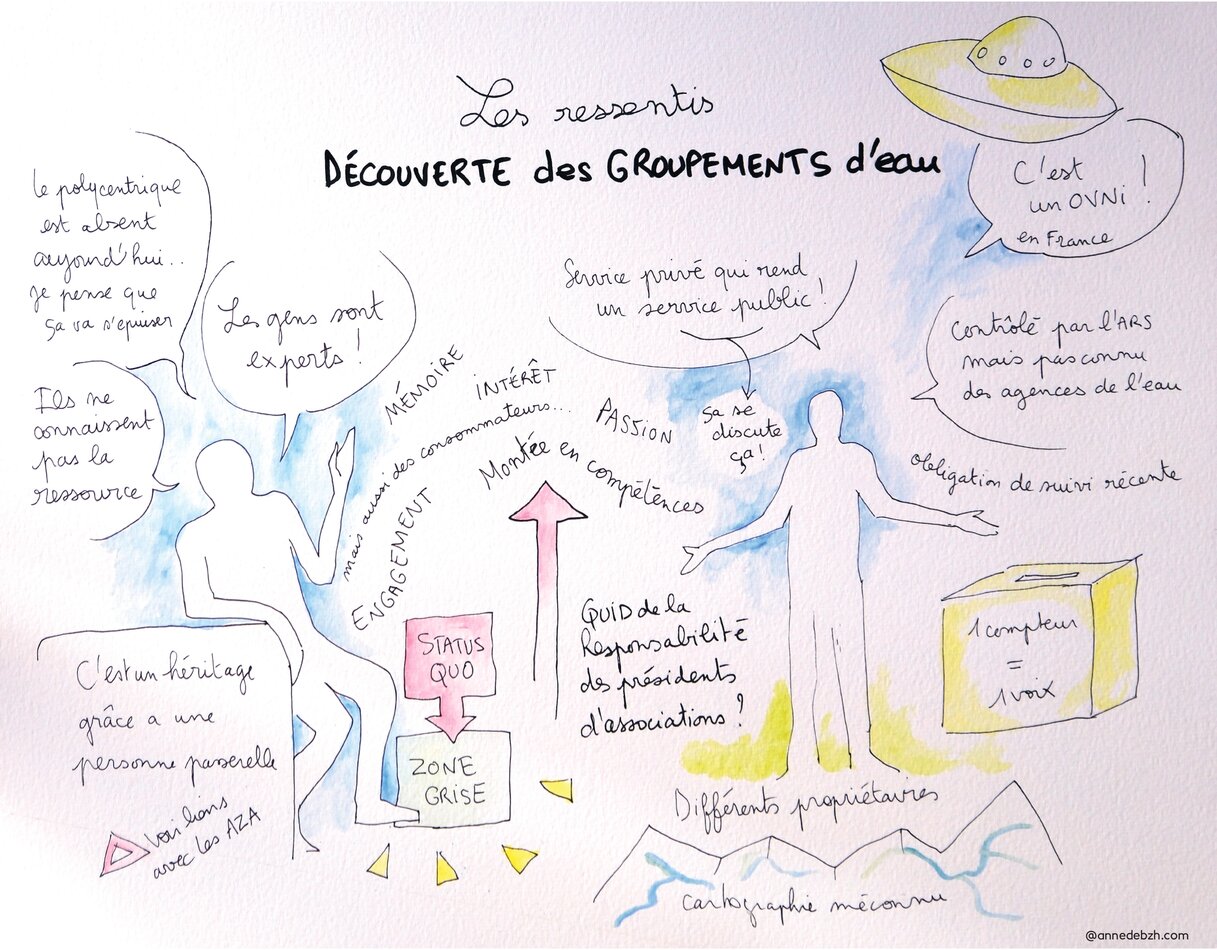 Les ressentis
DÉCOUVERTE des GROUPEMENTS d'eau
C'est
un OVNi !
en France
le polycentrique
est absent
aujourd'hui..
Je pense que
ça va s'épuiser
Les gens sont
experts !
Ils ne
connaissent
pas la
ressource
MÉMOIRE
INTÉRÊT
mais aussi des consommateurs...
PASSION
Montée en compétences
ENGAGEMENT
Service privé qui rend
un service public !
ça se
discute
ça !
Contrôlé par l'ARS
mais pas connu
des agences de l'eau
obligation de suivi récente
STATUS
QUO
ZONE
GRISE
QUID de la
Responsabilité
des présidents
d'associations ?
1 compteur
=
1 voix
C'est un héritage
grâce a une
personne passerelle
Voir liens
avec les AZA
Différents propriétaires
cartographie méconnue
@annedebzh.com